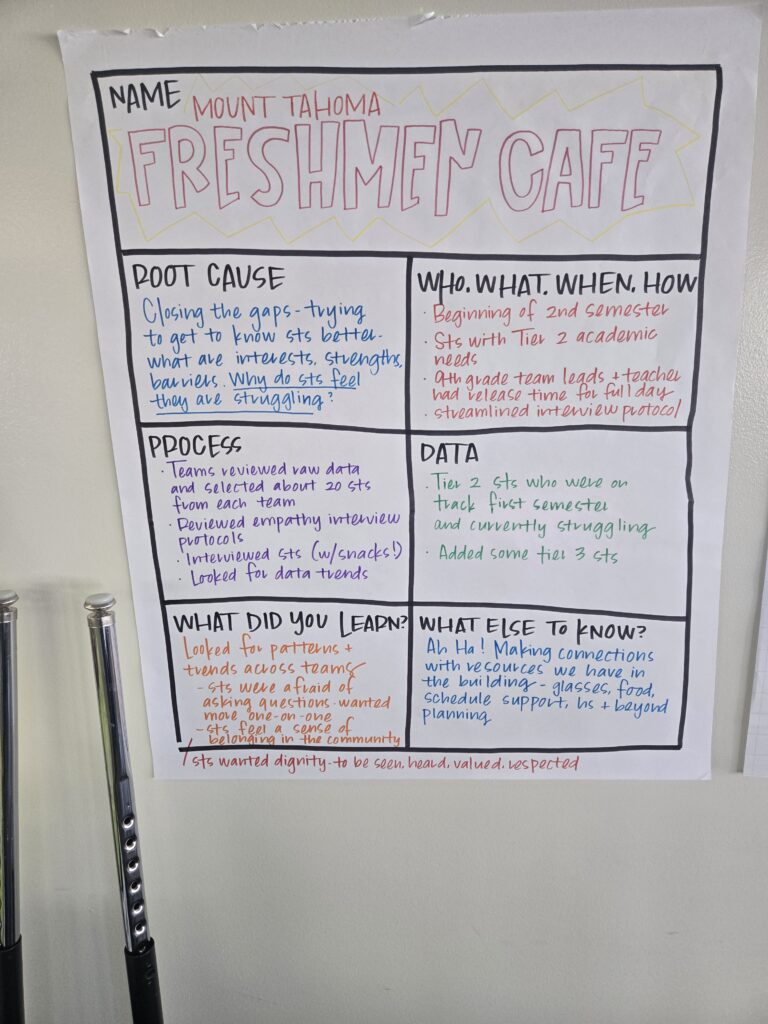 NAME MOUNT TAHOMA
FRESHMEN CAFE
ROOT CAUSE
Closing the gaps - trying
to get to know sts better-
what are interests, strengths,
barriers. Why do sts feel
they are struggling?
WHO. WHAT. WHEN. HOW
· Beginning of 2nd semester
· Sts with Tier 2 academic
needs
· 9th grade team leads + teacher
had release time for full day
· streamlined interview protocol
PROCESS
· Teams reviewed raw data
and selected about 20 sts
from each team
· Reviewed empathy interview
protocols
· Interviewed sts (w/snacks!)
· Looked for data trends
DATA
· Tier 2 sts who were on
track first semester
and currently struggling
· Added some tier 3 sts
WHAT DID YOU LEARN?
Looked for patterns +
trends across teams
- sts were afraid of
asking questions. wanted
more one-on-one
- sts feel a sense of
belonging in the community
sts wanted dignity - to be seen, heard, valued, respected
WHAT ELSE TO KNOW?
Ah Ha! Making connections
with resources we have in
the building - glasses, food,
schedule support, hs + beyond
planning